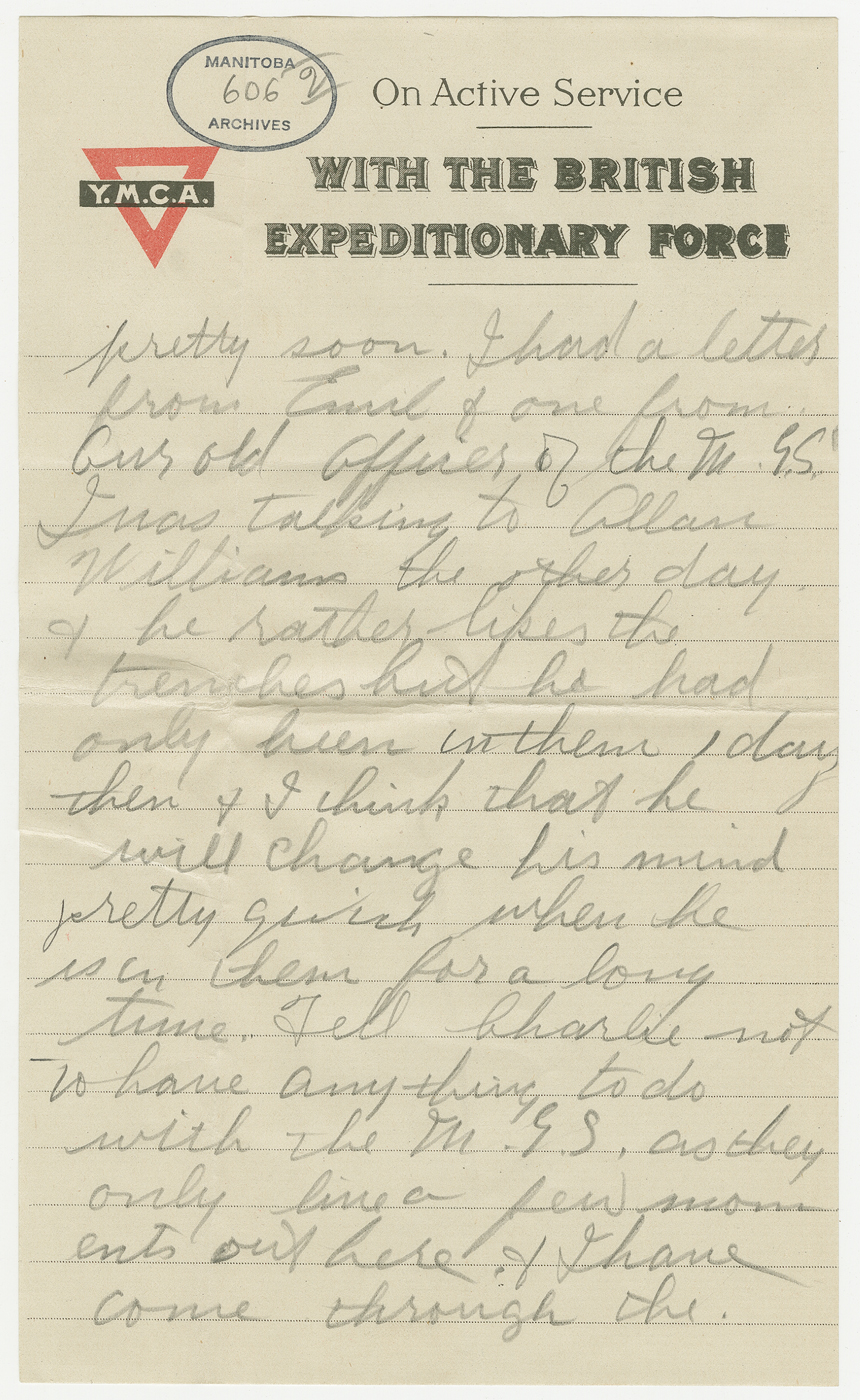 MANITOBA
606
ARCHIVES
On Active Service
Y.M.C.A.
WITH THE BRITISH
EXPEDITIONARY FORCE
pretty soon. I had a letter
from Emil & one from
Our old Officer of the M.G.S.
I was talking to Allan
Williams the other day.
& he rather likes the
trenches but he had
only been in them 1 day
then & I think that he
will change his mind
pretty quick when he
is in them for a long
time. Tell Charlie not
to have anything to do
with the M.G.S. as they
only live a few mom
ents out here & I have
come through the.